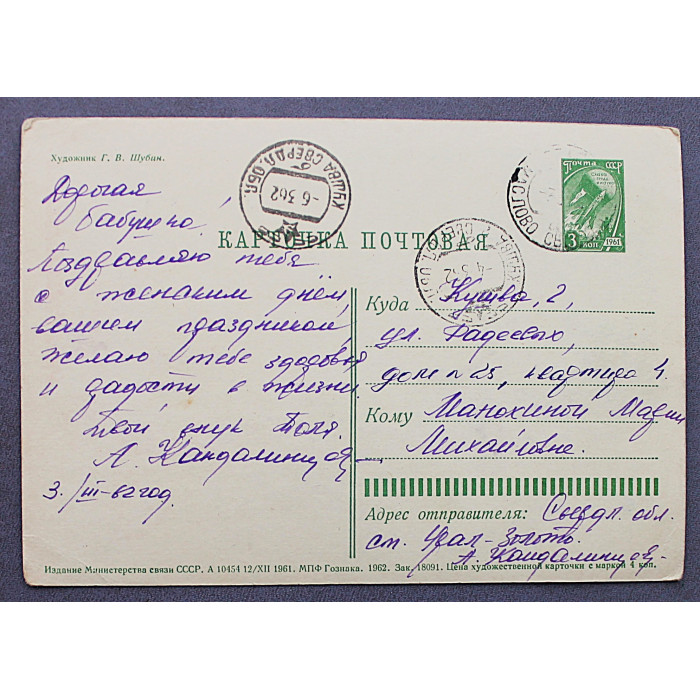 Художник Г. В. Шубин.
Дорогая
бабушка,
Поздравляю тебя
с женским днём,
вашим праздником,
желаю тебе здоровья
и радости в жизни.
Твой внук Толя.
А. Кандалинцев
3/III-62 год.
КАРТОЧКА ПОЧТОВАЯ
ПОЧТА СССР
3 коп 1961
КУШВА СВЕРДЛ. ОБЛ.
-6 3 62
-4 3 62
Куда Кушва, 2,
ул. Фадеевых,
дом № 25, квартира 4.
Кому Манохиной Марии
Михайловне.
Адрес отправителя: Свердл. обл.
ст. Урал-Золото.
А. Кандалинцев
Издание Министерства связи СССР. А 10454 12/XII 1961. МПФ Гознака. 1962. Зак. 18091. Цена художественной карточки с маркой 4 коп.